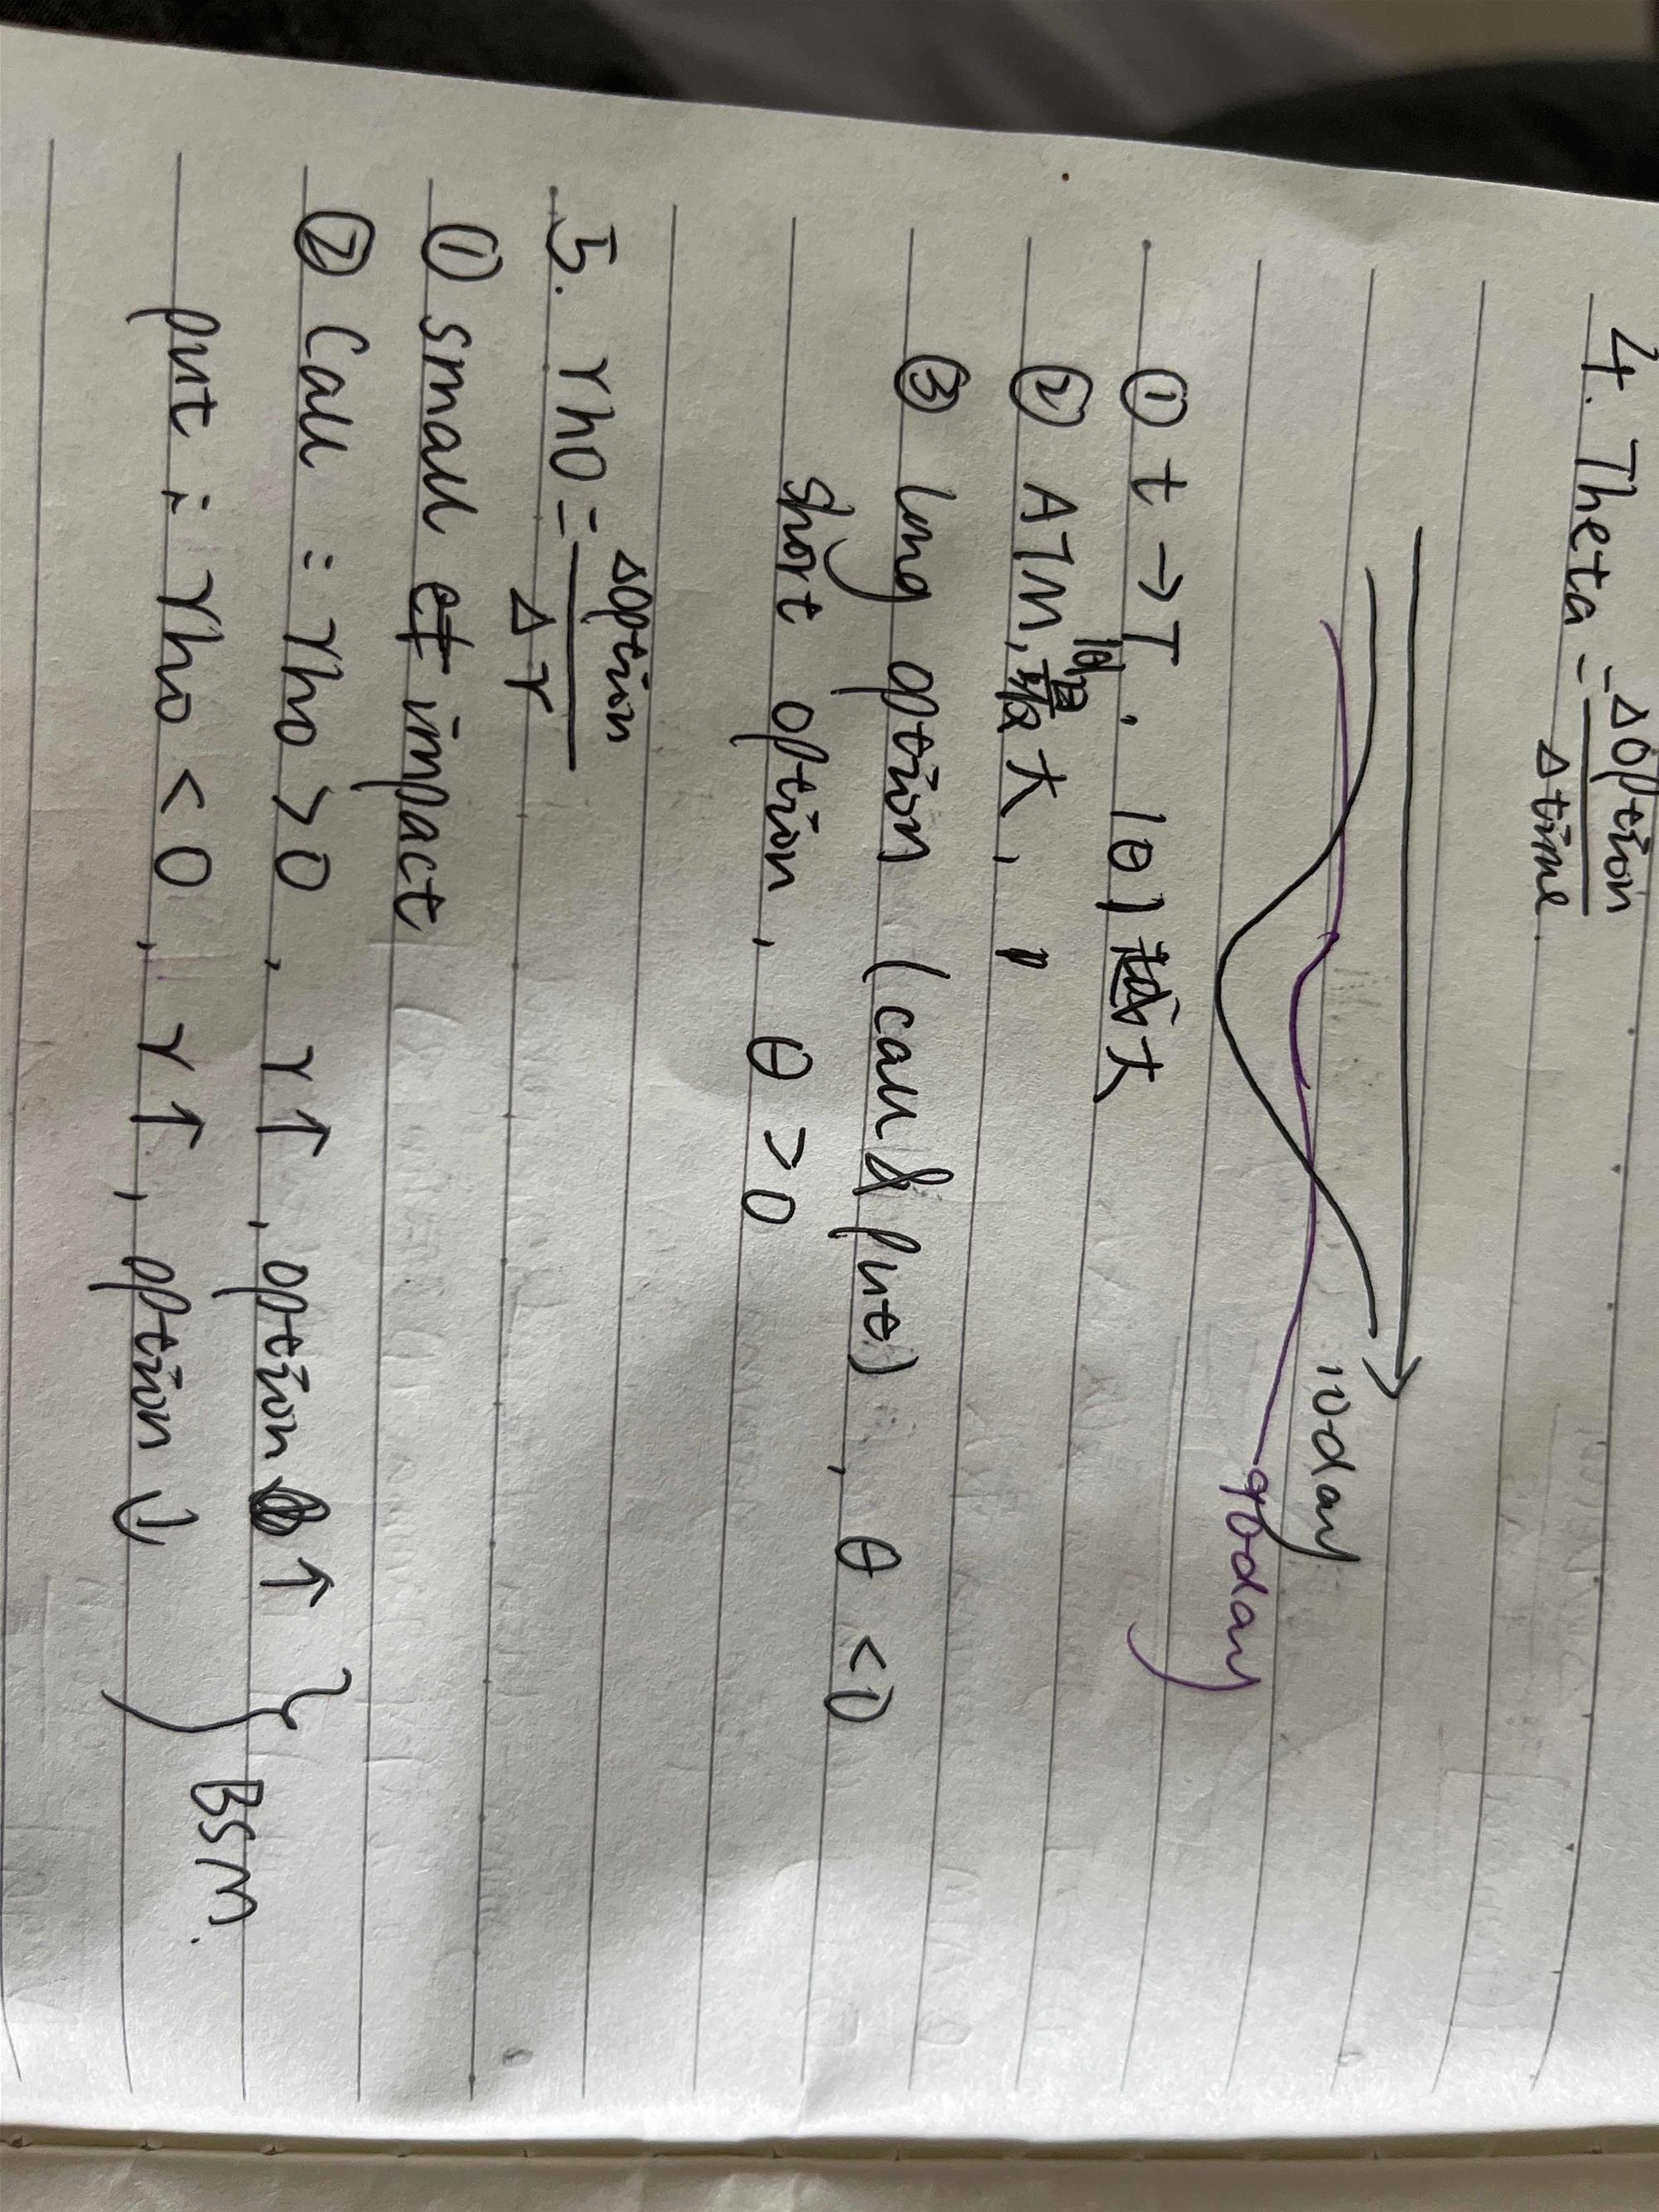 4. Theta = -Δoption/Δtime.
10day
90day
① t → T, |θ| 越大
② ATM, |θ|最大,
③ long option (call & put), θ < 0
short option, θ > 0
5. rho = Δoption/Δr
① small impact
② Call : rho > 0, r↑, option ↑
put : rho < 0, r↑, option ↓
BSM.